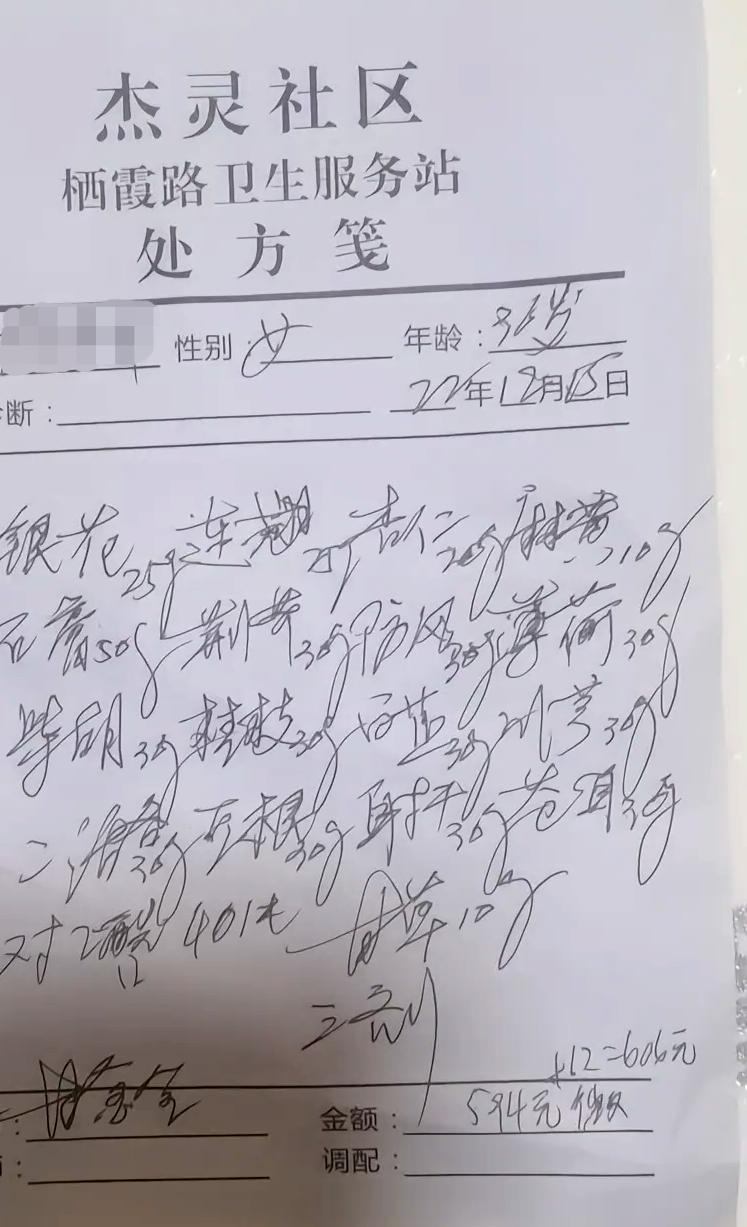 杰灵社区
栖霞路卫生服务站
处方笺
性别 女 年龄：36岁
诊断： 22年12月15日
银花25g 连翘25g 杏仁20g 麻黄10g
石膏50g 荆芥30g 防风30g 薄荷30g
柴胡30g 桂枝30g 川芎30g
二活各30g 豆根30g 射干30g 苍耳30g
对乙酰 甘草10g
12
三剂
+12=606元
金额： 594元
调配：